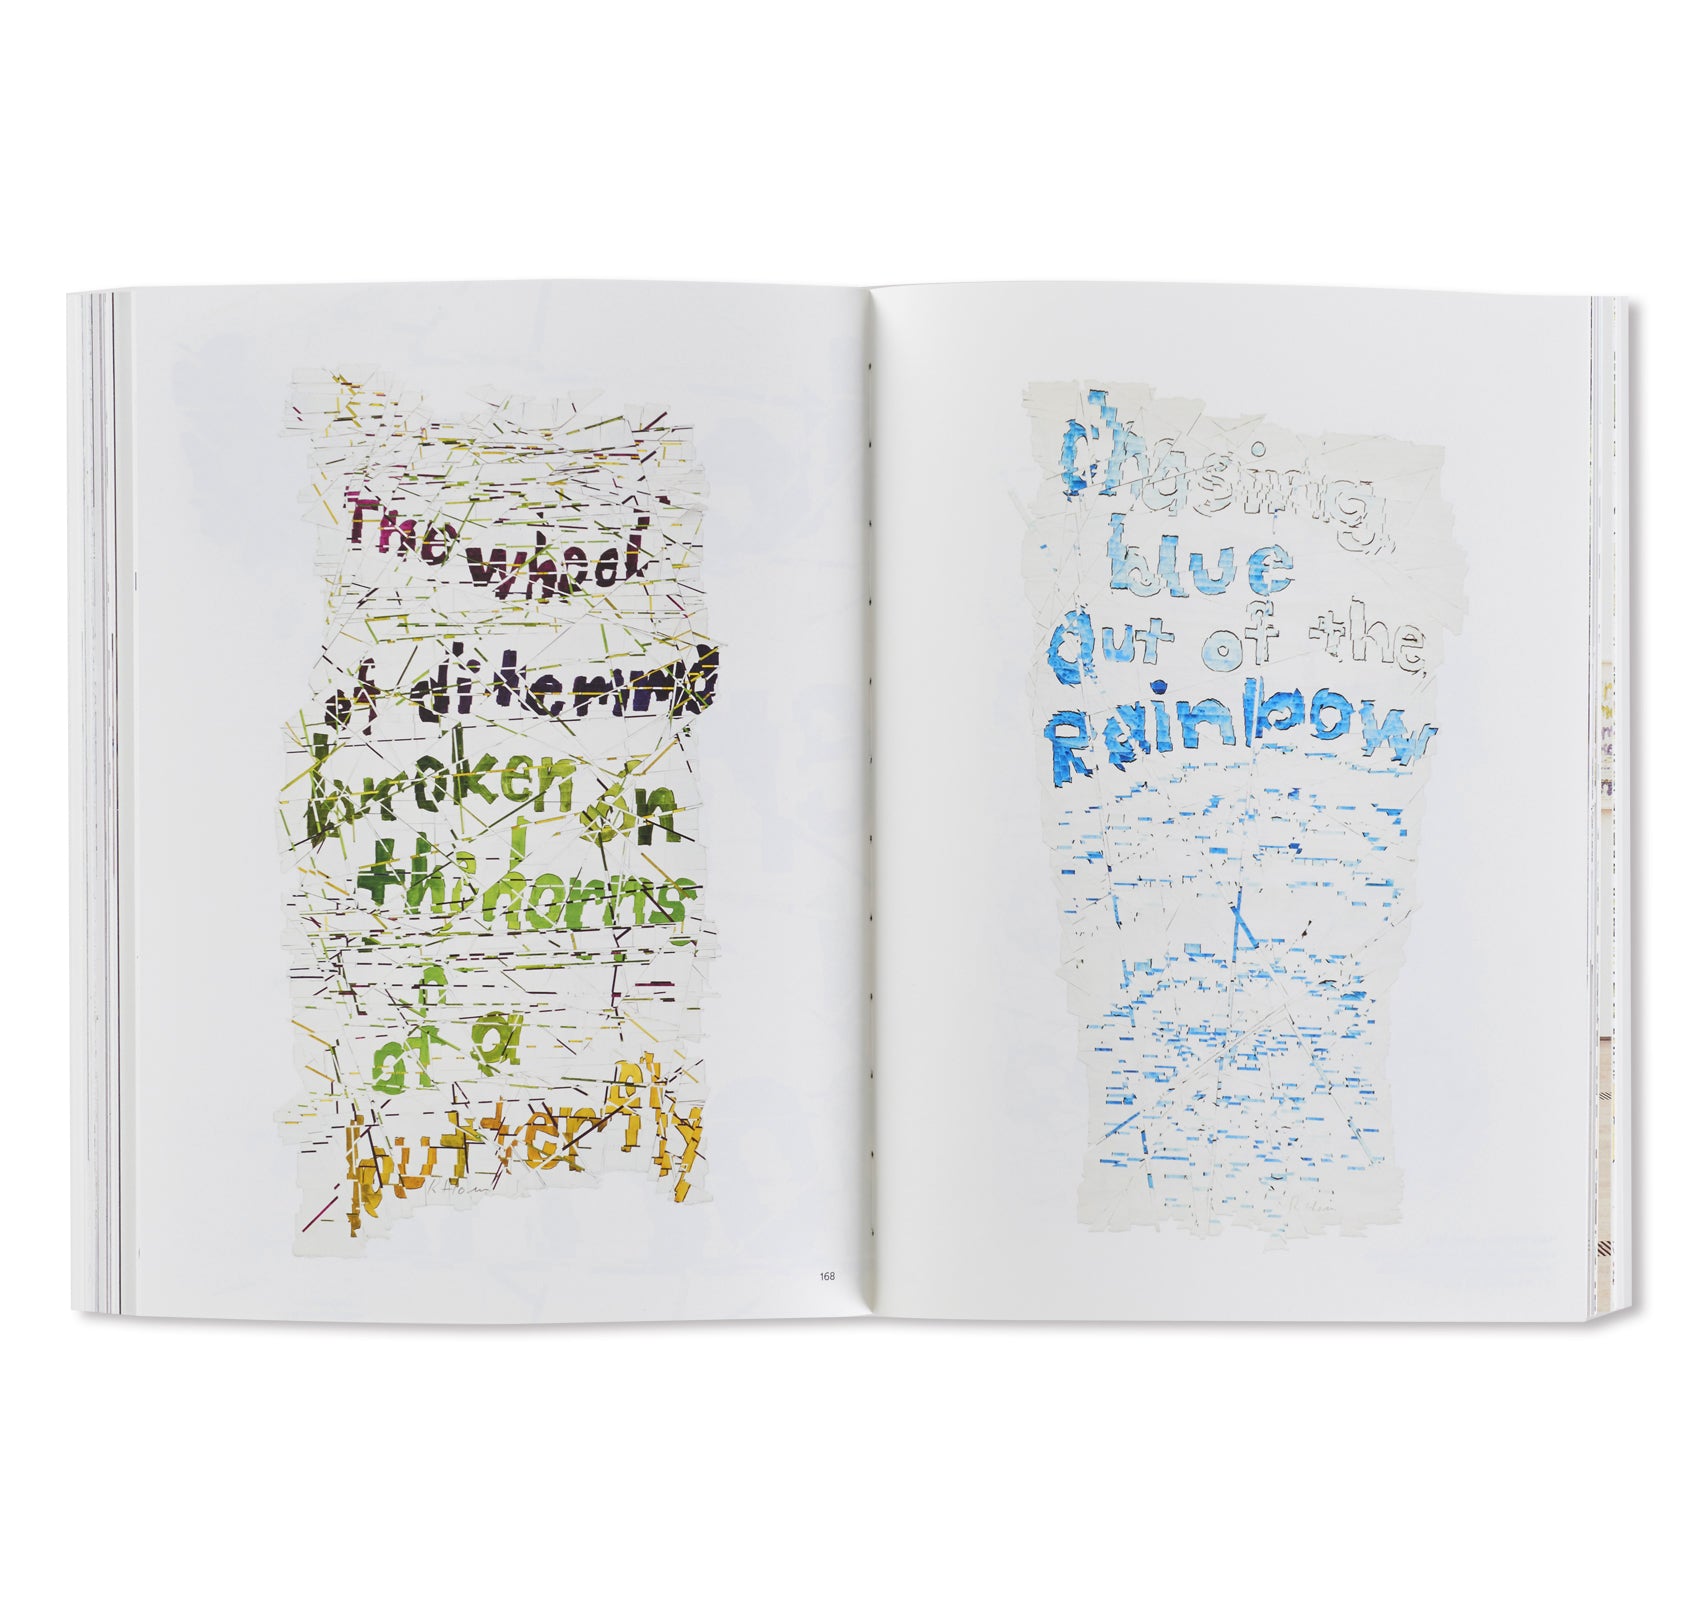 The wheel
of dilemma
broken on
the horns
of a
butterfly
R Horn
168
chasing
blue
out of the
Rainbow
R Horn